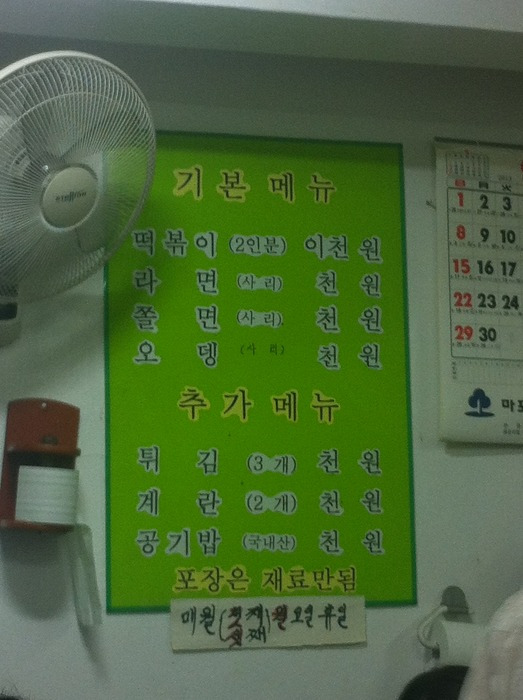 기본메뉴
떡볶이 (2인분) 이천 원
라면 (사리) 천 원
쫄면 (사리) 천 원
오뎅 (사리) 천 원
추가메뉴
튀김 (3개) 천 원
계란 (2개) 천 원
공기밥 (국내산) 천 원
포장은 재료만됨
매월 월요일 휴일
日 月 火
1 2 3
8 9 10
15 16 17
22 23 24
29 30
마포